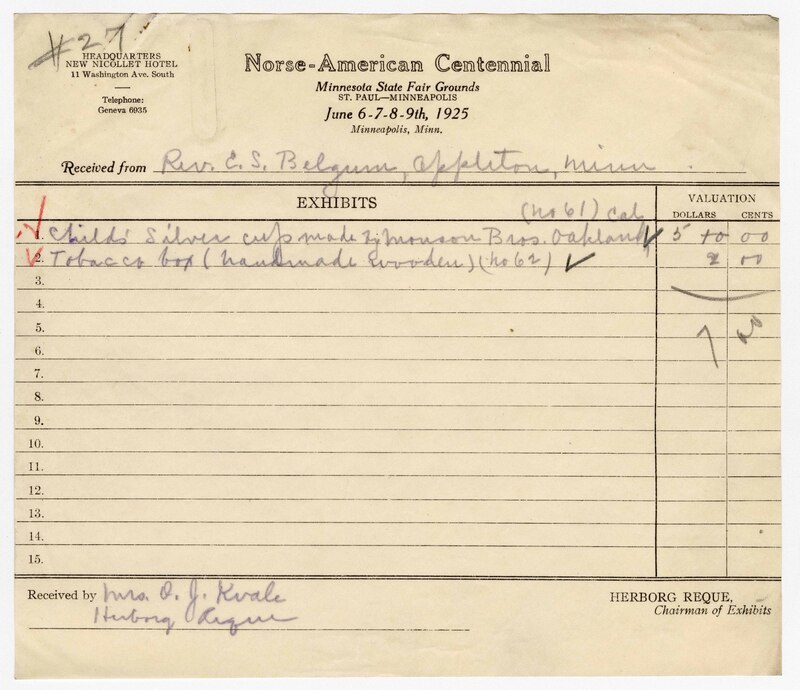 #27
HEADQUARTERS
NEW NICOLLET HOTEL
11 Washington Ave. South
Telephone:
Geneva 6935
Norse-American Centennial
Minnesota State Fair Grounds
ST. PAUL—MINNEAPOLIS
June 6-7-8-9th, 1925
Minneapolis, Minn.
Received from Rev. E. S. Belgum, Appleton, Minn.
EXHIBITS
VALUATION
DOLLARS CENTS
(no 61) Cal.
1. Child's Silver cup made by Monson Bros. Oakland 5 00
2. Tobacco box (handmade wooden) (no 62) 2 00
3.
4.
5. 7 00
6.
7.
8.
9.
10.
11.
12.
13.
14.
15.
Received by Mrs. O. J. Kvale
Herborg Reque
HERBORG REQUE,
Chairman of Exhibits